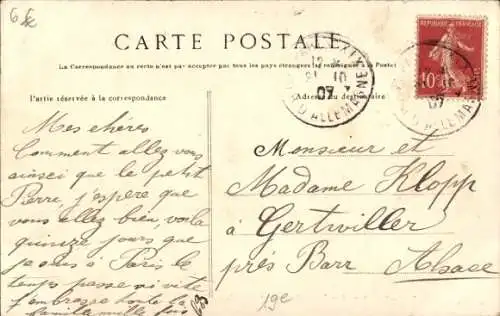 6 fc
CARTE POSTALE
La Correspondance au recto n'est pas acceptée par tous les pays étrangers (se renseigner à la Poste)
Partie réservée à la correspondance
Adresse du destinataire
REPUBLIQUE FRANÇAISE
10
21 10
07
D'ALLEMAGNE
07
D'ALLEMAGNE
Mes chères
Comment allez vous
ainsi que le petit
Pierre, j'espère que
vous allez bien, voila
quinze jours que
je suis à Paris le
temps passe si vite
J'embrasse toute la
famille mille fois
Monsieur et
Madame Klopp
à Gertwiller
près Barr Alsace
19e